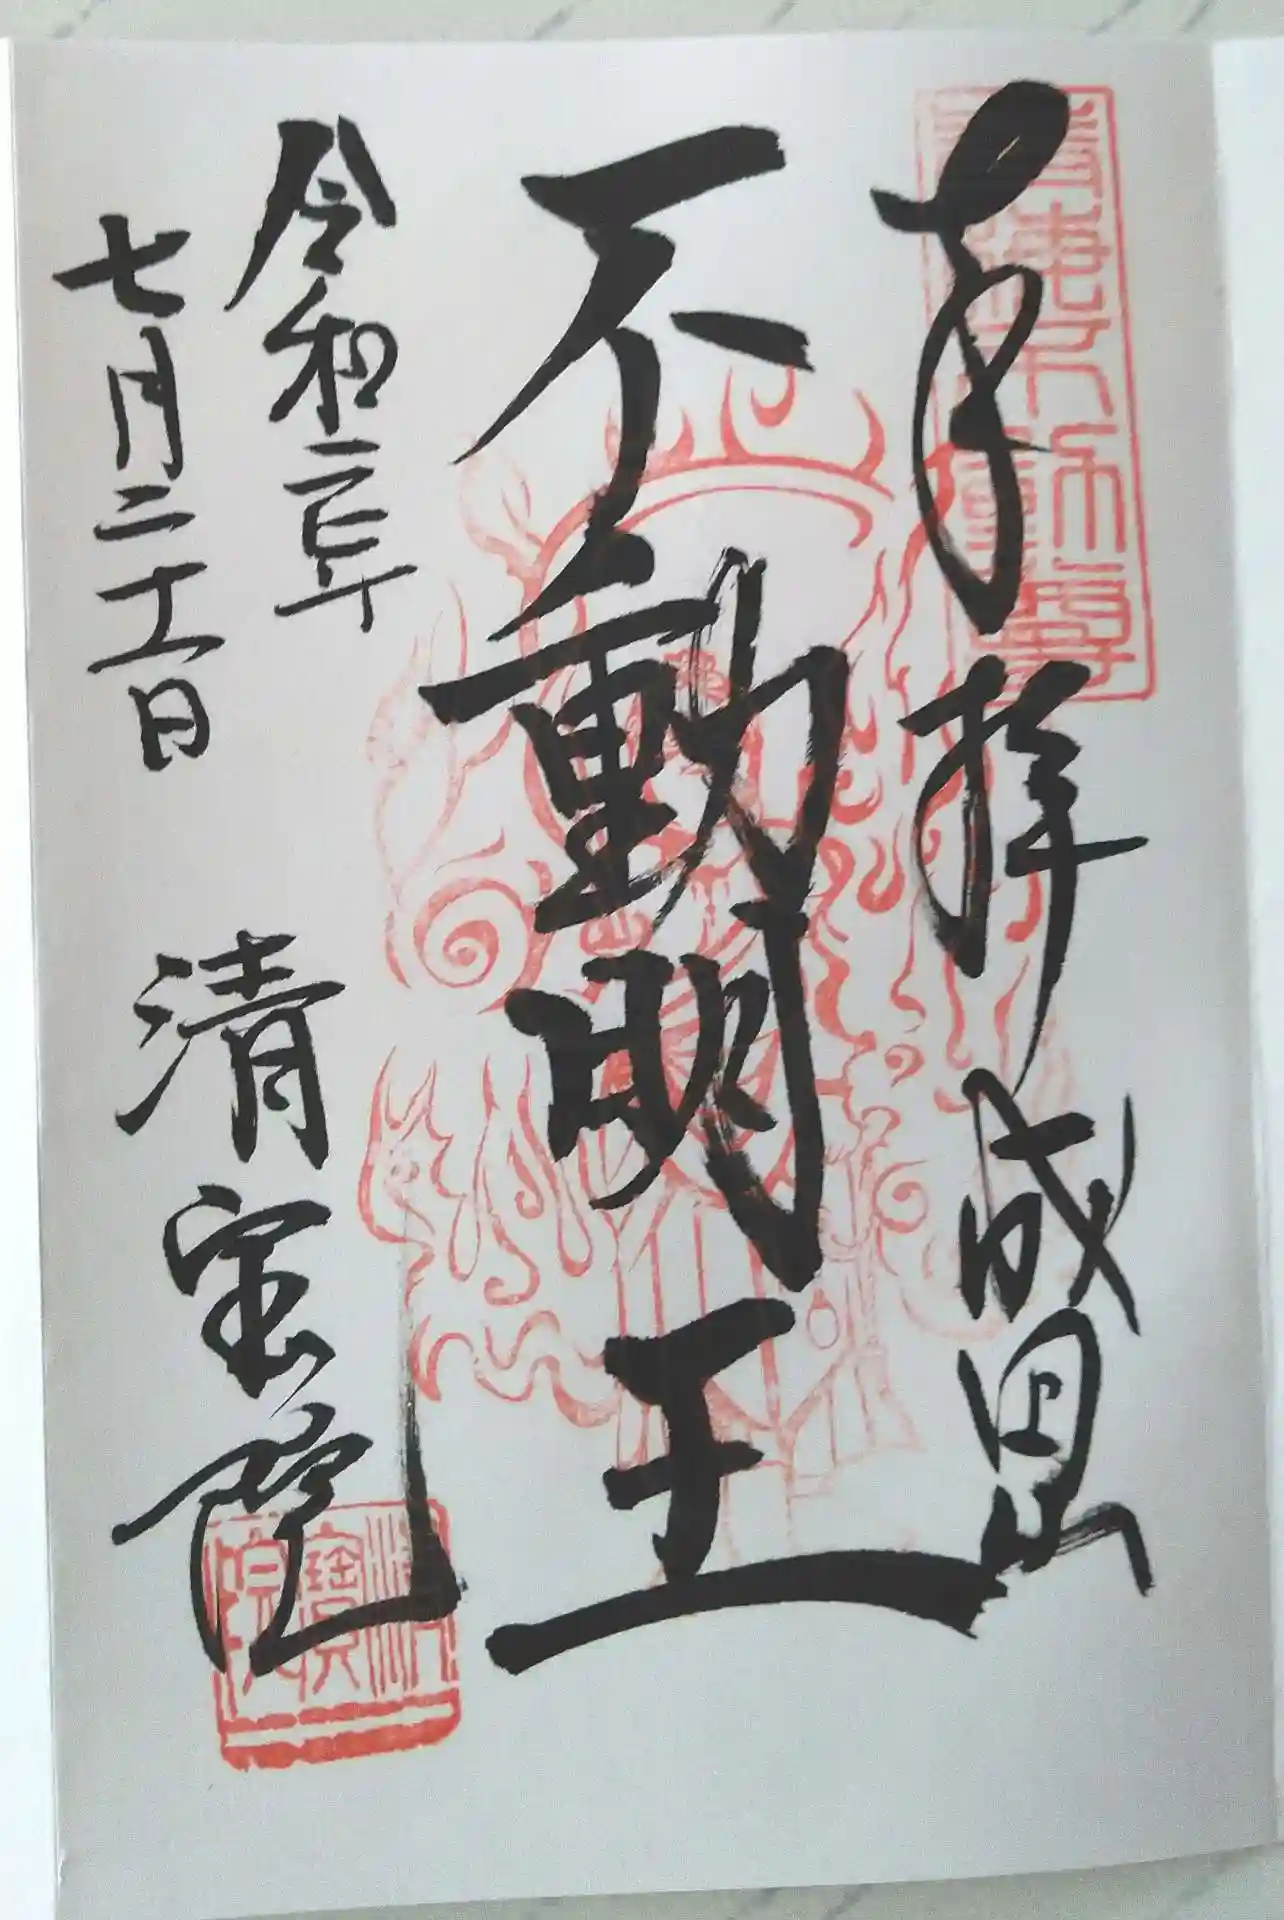 奉拝 成田山
不動明王
令和二年
七月二十一日
清宝院
清寶院